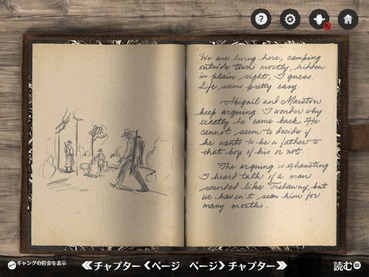 ?
We are living here, camping
outside town mostly, hidden
in plain sight, I guess.
Life, seems pretty easy
Abigail and Marston
keep arguing. I wonder why
exactly he came back. He
cannot seem to decide if
he wants to be a father to
that boy if his or not.
The arguing is exhausting
I heard talk of a man
sounded like Trelawny, but
we haven't seen him for
many months.
ギャングの貯金を表示
チャプター ページ ページ チャプター 読む